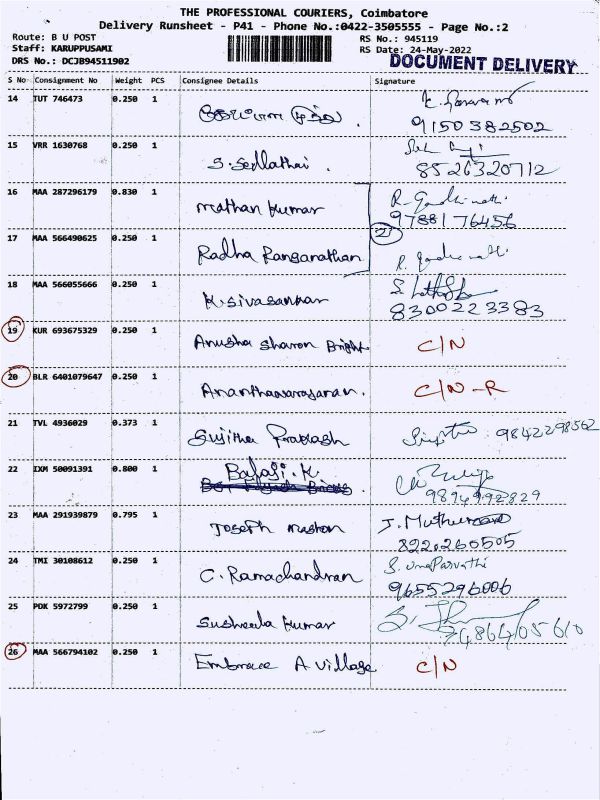 THE PROFESSIONAL COURIERS, Coimbatore
Delivery Runsheet - P41 - Phone No.:0422-3505555 - Page No.:2
Route: B U POST RS No.: 945119
Staff: KARUPPUSAMI RS Date: 24-May-2022
DRS No.: DCJB94511902 DOCUMENT DELIVERY
S No Consignment No Weight PCS Consignee Details Signature
14 TUT 746473 0.250 1
9150382502
15 VRR 1630768 0.250 1 S. Sellathai.
8526320712
16 MAA 287296179 0.830 1 Mathan Kumar
9788176456
17 MAA 566490625 0.250 1 Radha Ranganathan 2
18 MAA 566055666 0.250 1 K. Sivasankar
8300223383
19 KUR 693675329 0.250 1 Anusha Sharon Bright C/N
20 BLR 6401079647 0.250 1 C/N-R
21 TVL 4936029 0.373 1 Sujitha Prakash 9842298562
22 IXM 50091391 0.800 1 Balaji. K
9894992829
23 MAA 291939879 0.795 1 Joseph
8220260505
24 TMI 30108612 0.250 1 C. Ramachandran S. Uma Parvathi
9655296006
25 PDK 5972799 0.250 1 Susheela Kumar
26 MAA 566794102 0.250 1 Embrace A Village C/N